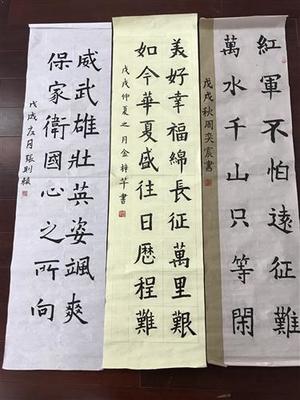 紅軍不怕遠征難
萬水千山只等閑
戊戌秋周奕宸書
美好幸福綿長征萬里艱
如今華夏盛往日歷程難
戊戌仲夏之月金梓芊書
威武雄壯英姿颯爽
保家衛國心之所向
戊戌